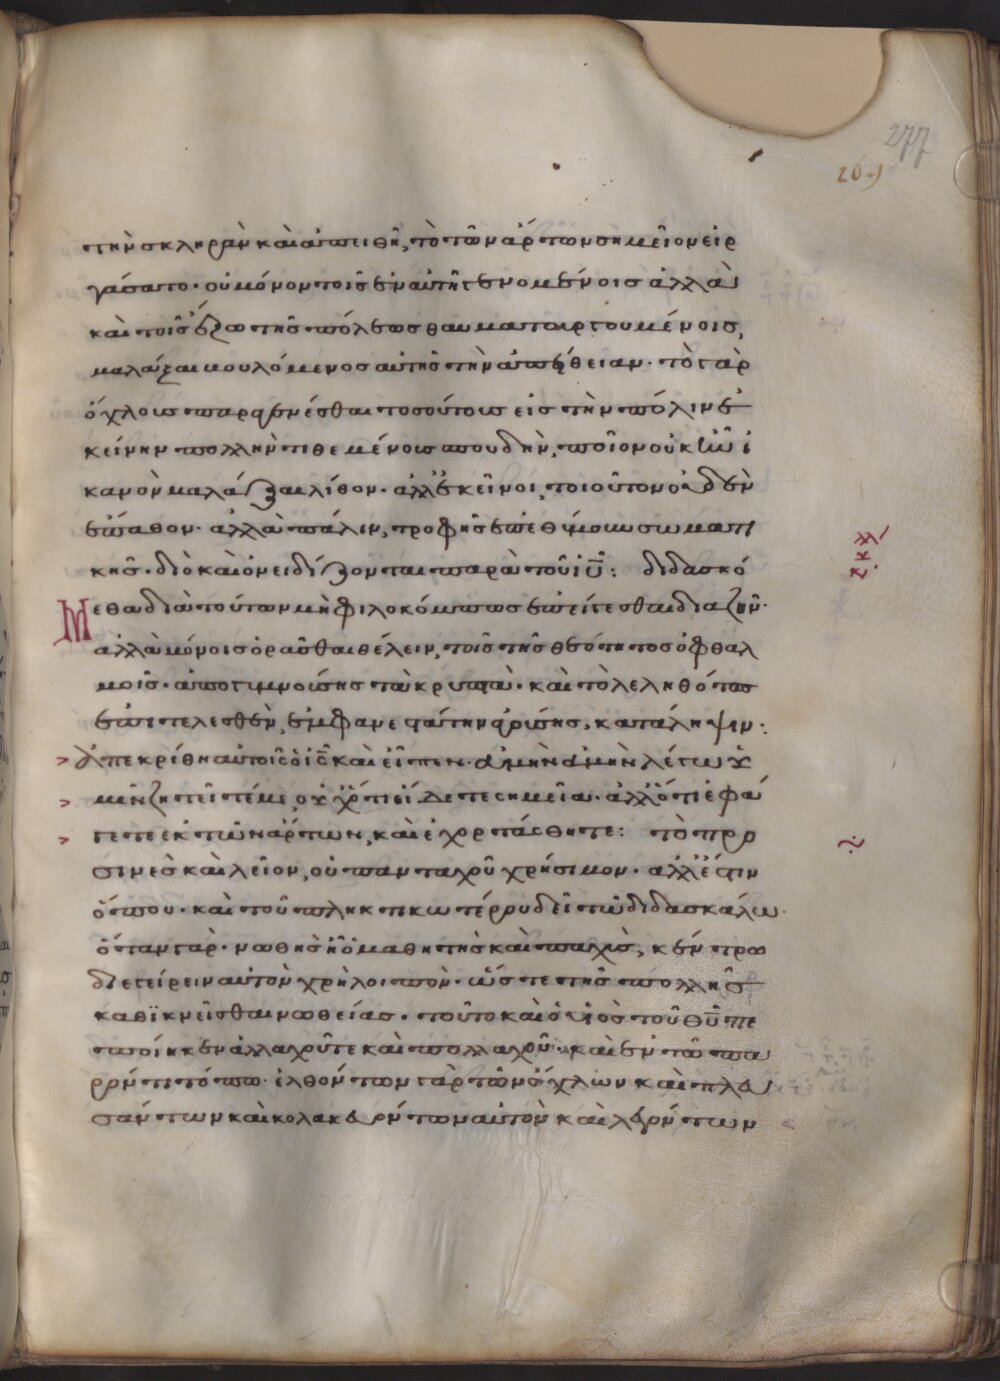 277
269
τὴν σκληρὰν καὶ ἀπειθῆ, τὸ τῶν ἄρτων σημεῖον εἰρ
γάσατο· οὐ μόνον τοῖς ἐν αὐτῆ γενομένοις ἀλλὰ
καὶ τοῖς ἔξω τῆς πόλεως θαυματουργουμένοις,
μαλάξαι βουλόμενος αὐτῆς τὴν ἀπείθειαν· τὸ γὰρ
ὄχλους παραγενέσθαι τοσούτους εἰς τὴν πόλιν ἐ
κείνην πολλὴν τιθεμένους σπουδὴν, ποῖον οὐκ ἦν ἱ
κανὸν μαλάξαι λίθον· ἀλλ' ἐκεῖνοι, τοιοῦτον οὐδὲν
ἔπαθον· ἀλλὰ πάλιν, τροφῆς ἐπεθύμουν σωματι
κῆς· διὸ καὶ ὀνειδίζονται παρὰ τοῦ ἰῡ: διδασκό
μεθα διὰ τούτων μὴ φιλοκόμπως ἐπείγεσθαι διαζῆν·
ἀλλὰ μόνοις ὁρᾶσθαι θέλειν, τοῖς τῆς θεότητος ὀφθαλ
μοῖς· ἀπογυμνούσης τὰ κρυπτὰ· καὶ τὸ λεληθότως
ἐπιτελεσθὲν, ἐμφανεστάτην ἀγούσης, κατάληψιν:
> Ἀπεκρίθη αὐτοῖς ὁ ἰς̄ καὶ εἶπεν· ἀμὴν ἀμὴν λέγω ὑ
> μῖν ζητεῖτέ με, οὐχ ὅτι εἴδετε σημεῖα· ἀλλ' ὅτι ἐφά
> γετε ἐκ τῶν ἄρτων, καὶ ἐχορτάσθητε: τὸ προ
σινὲς καὶ λεῖον, οὐ πανταχοῦ χρήσιμον· ἀλλ' ἔστιν
ὅπου· καὶ τοῦ πληκτικωτέρου δεῖ τῶ διδασκάλω·
ὅταν γὰρ· νωθὴς ἦ ὁ μαθητὴς καὶ παχὺς, κέντρω
διεγείρειν αὐτὸν χρὴ λοιπὸν· ὥστε τῆς πολλῆς
καθϊκνεῖσθαι νωθείας· τοῦτο καὶ ὁ υἱὸς τοῦ θῡ πε
ποίηκεν ἀλλαχοῦ τε καὶ πολλαχοῦ· καὶ ἐν τῶ πα
ρόντι τόπω· ἐλθόντων γὰρ τῶν ὄχλων καὶ
σάντων καὶ κολακευόντων αὐτὸν καὶ λεγόντων